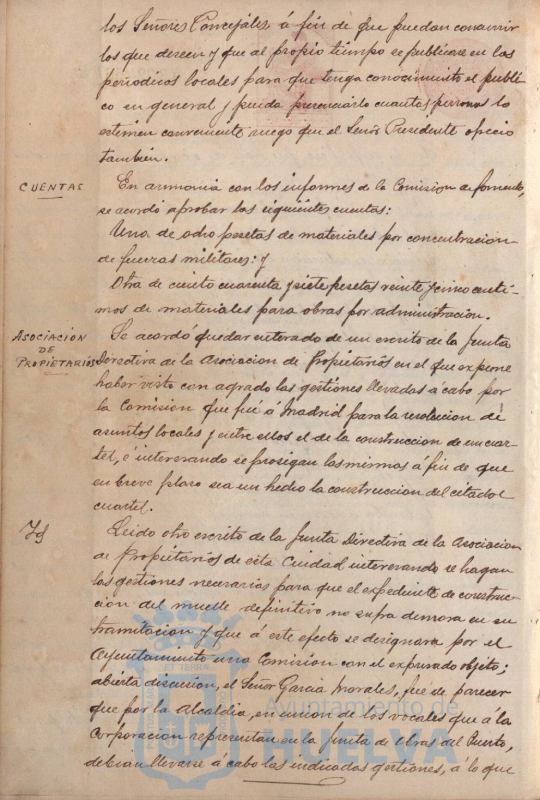 los Señores Concejales á fin de que puedan concurrir
los que deseen y que al propio tiempo se publicase en los
periodicos locales para que tenga conocimiento el públi-
co en general y pueda presenciarlo cuantas personas lo
estimen conveniente ruego que el Señor Presidente ofreció
tambien.
CUENTAS
En armonia con los informes de la Comision de fomento,
se acordó aprobar las siguientes cuentas:
Una de ocho pesetas de materiales por concentracion
de fuerzas militares: y
Otra de ciento cuarenta y siete pesetas veinte y cinco centi-
mos de materiales para obras por administracion.
ASOCIACIÓN
DE
PROPIETARIOS
Se acordó quedar enterado de un escrito de la Junta
Directiva de la Asociacion de Propietarios en el que expone
haber visto con agrado las gestiones llevadas á cabo por
la Comision que fué á Madrid para la resolucion de
asuntos locales y entre ellos el de la construccion de un cuar-
tel, é interesando se prosigan las mismas á fin de que
en breve plazo sea un hecho la construccion del citado
cuartel.
Id
Leido otro escrito de la Junta Directiva de la Asociacion
de Propietarios de esta Ciudad interesando se hagan
las gestiones necesarias para que el expediente de construc-
cion del muelle definitivo no sufra demora en su
tramitacion y que á este efecto se designara por el
Ayuntamiento una Comision con el expresado objeto;
abierta discusion, el Señor Garcia Morales, fué de parecer
que por la Alcaldia, en union de los vocales que á la
Corporacion representan en la Junta de Obras del Puerto,
debian llevarse á cabo las indicadas gestiones, á lo que
Ayuntamiento de
HUELVA